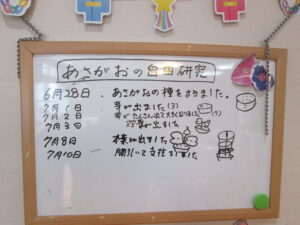 あさがおの自由研究
6月28日、あさがおの種をまきました。
7月1日 芽が出ました(3)
7月2日 芽がたくさん出て大きくなりました(7)
7月3日 双葉が出ました
7月8日 本葉が出ました
7月10日 間引いて支柱